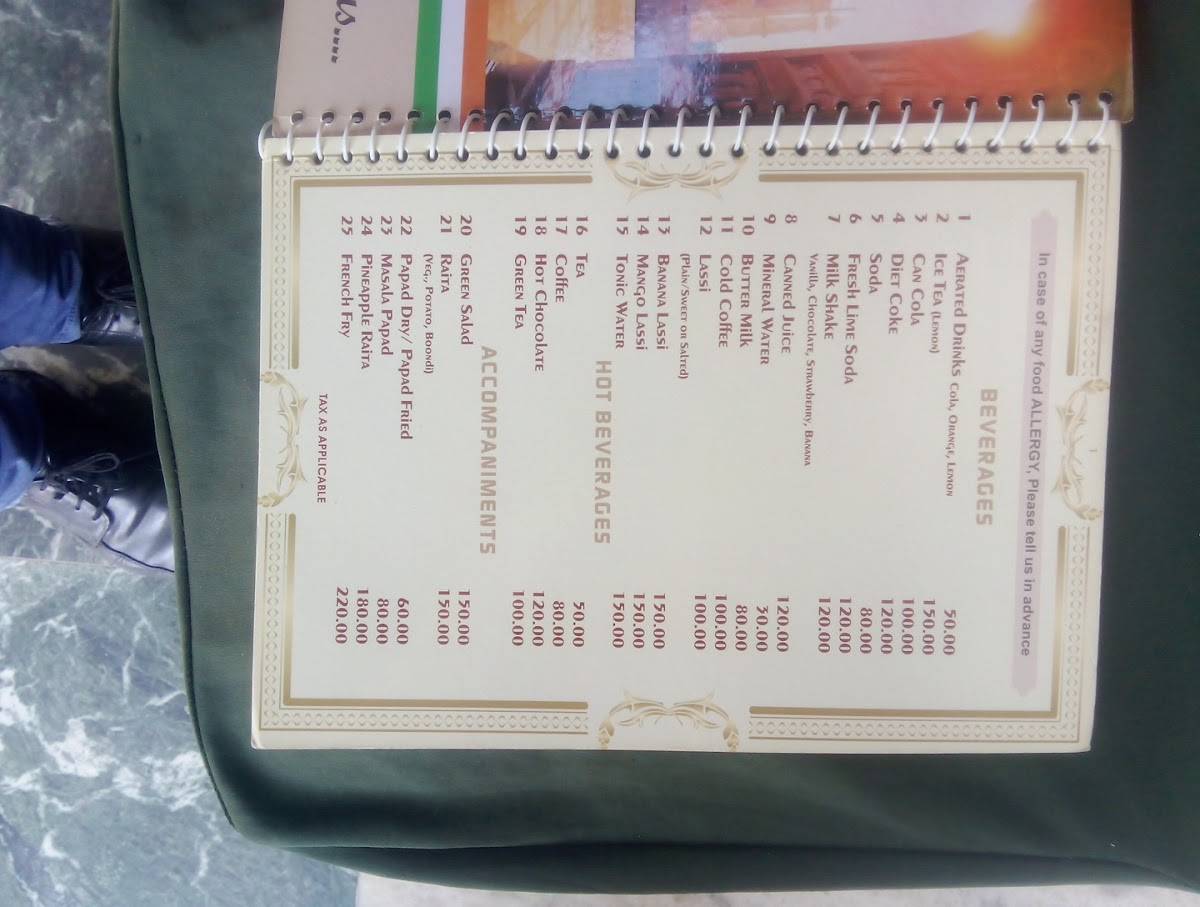 In case of any food ALLERGY, Please tell us in advance
1
BEVERAGES
1 Aerated Drinks Cola, Orange, Lemon 50.00
2 Ice Tea (Lemon) 150.00
3 Can Cola 100.00
4 Diet Coke 120.00
5 Soda 80.00
6 Fresh Lime Soda 120.00
7 Milk Shake 120.00
Vanilla, Chocolate, Strawberry, Banana
8 Canned Juice 120.00
9 Mineral Water 30.00
10 Butter Milk 80.00
11 Cold Coffee 100.00
12 Lassi 100.00
(Plain/Sweet or Salted)
13 Banana Lassi 150.00
14 Mango Lassi 150.00
15 Tonic Water 150.00
HOT BEVERAGES
16 Tea 50.00
17 Coffee 80.00
18 Hot Chocolate 120.00
19 Green Tea 100.00
ACCOMPANIMENTS
20 Green Salad 150.00
21 Raita 150.00
(Veg., Potato, Boondi)
22 Papad Dry/ Papad Fried 60.00
23 Masala Papad 80.00
24 Pineapple Raita 180.00
25 French Fry 220.00
TAX AS APPLICABLE